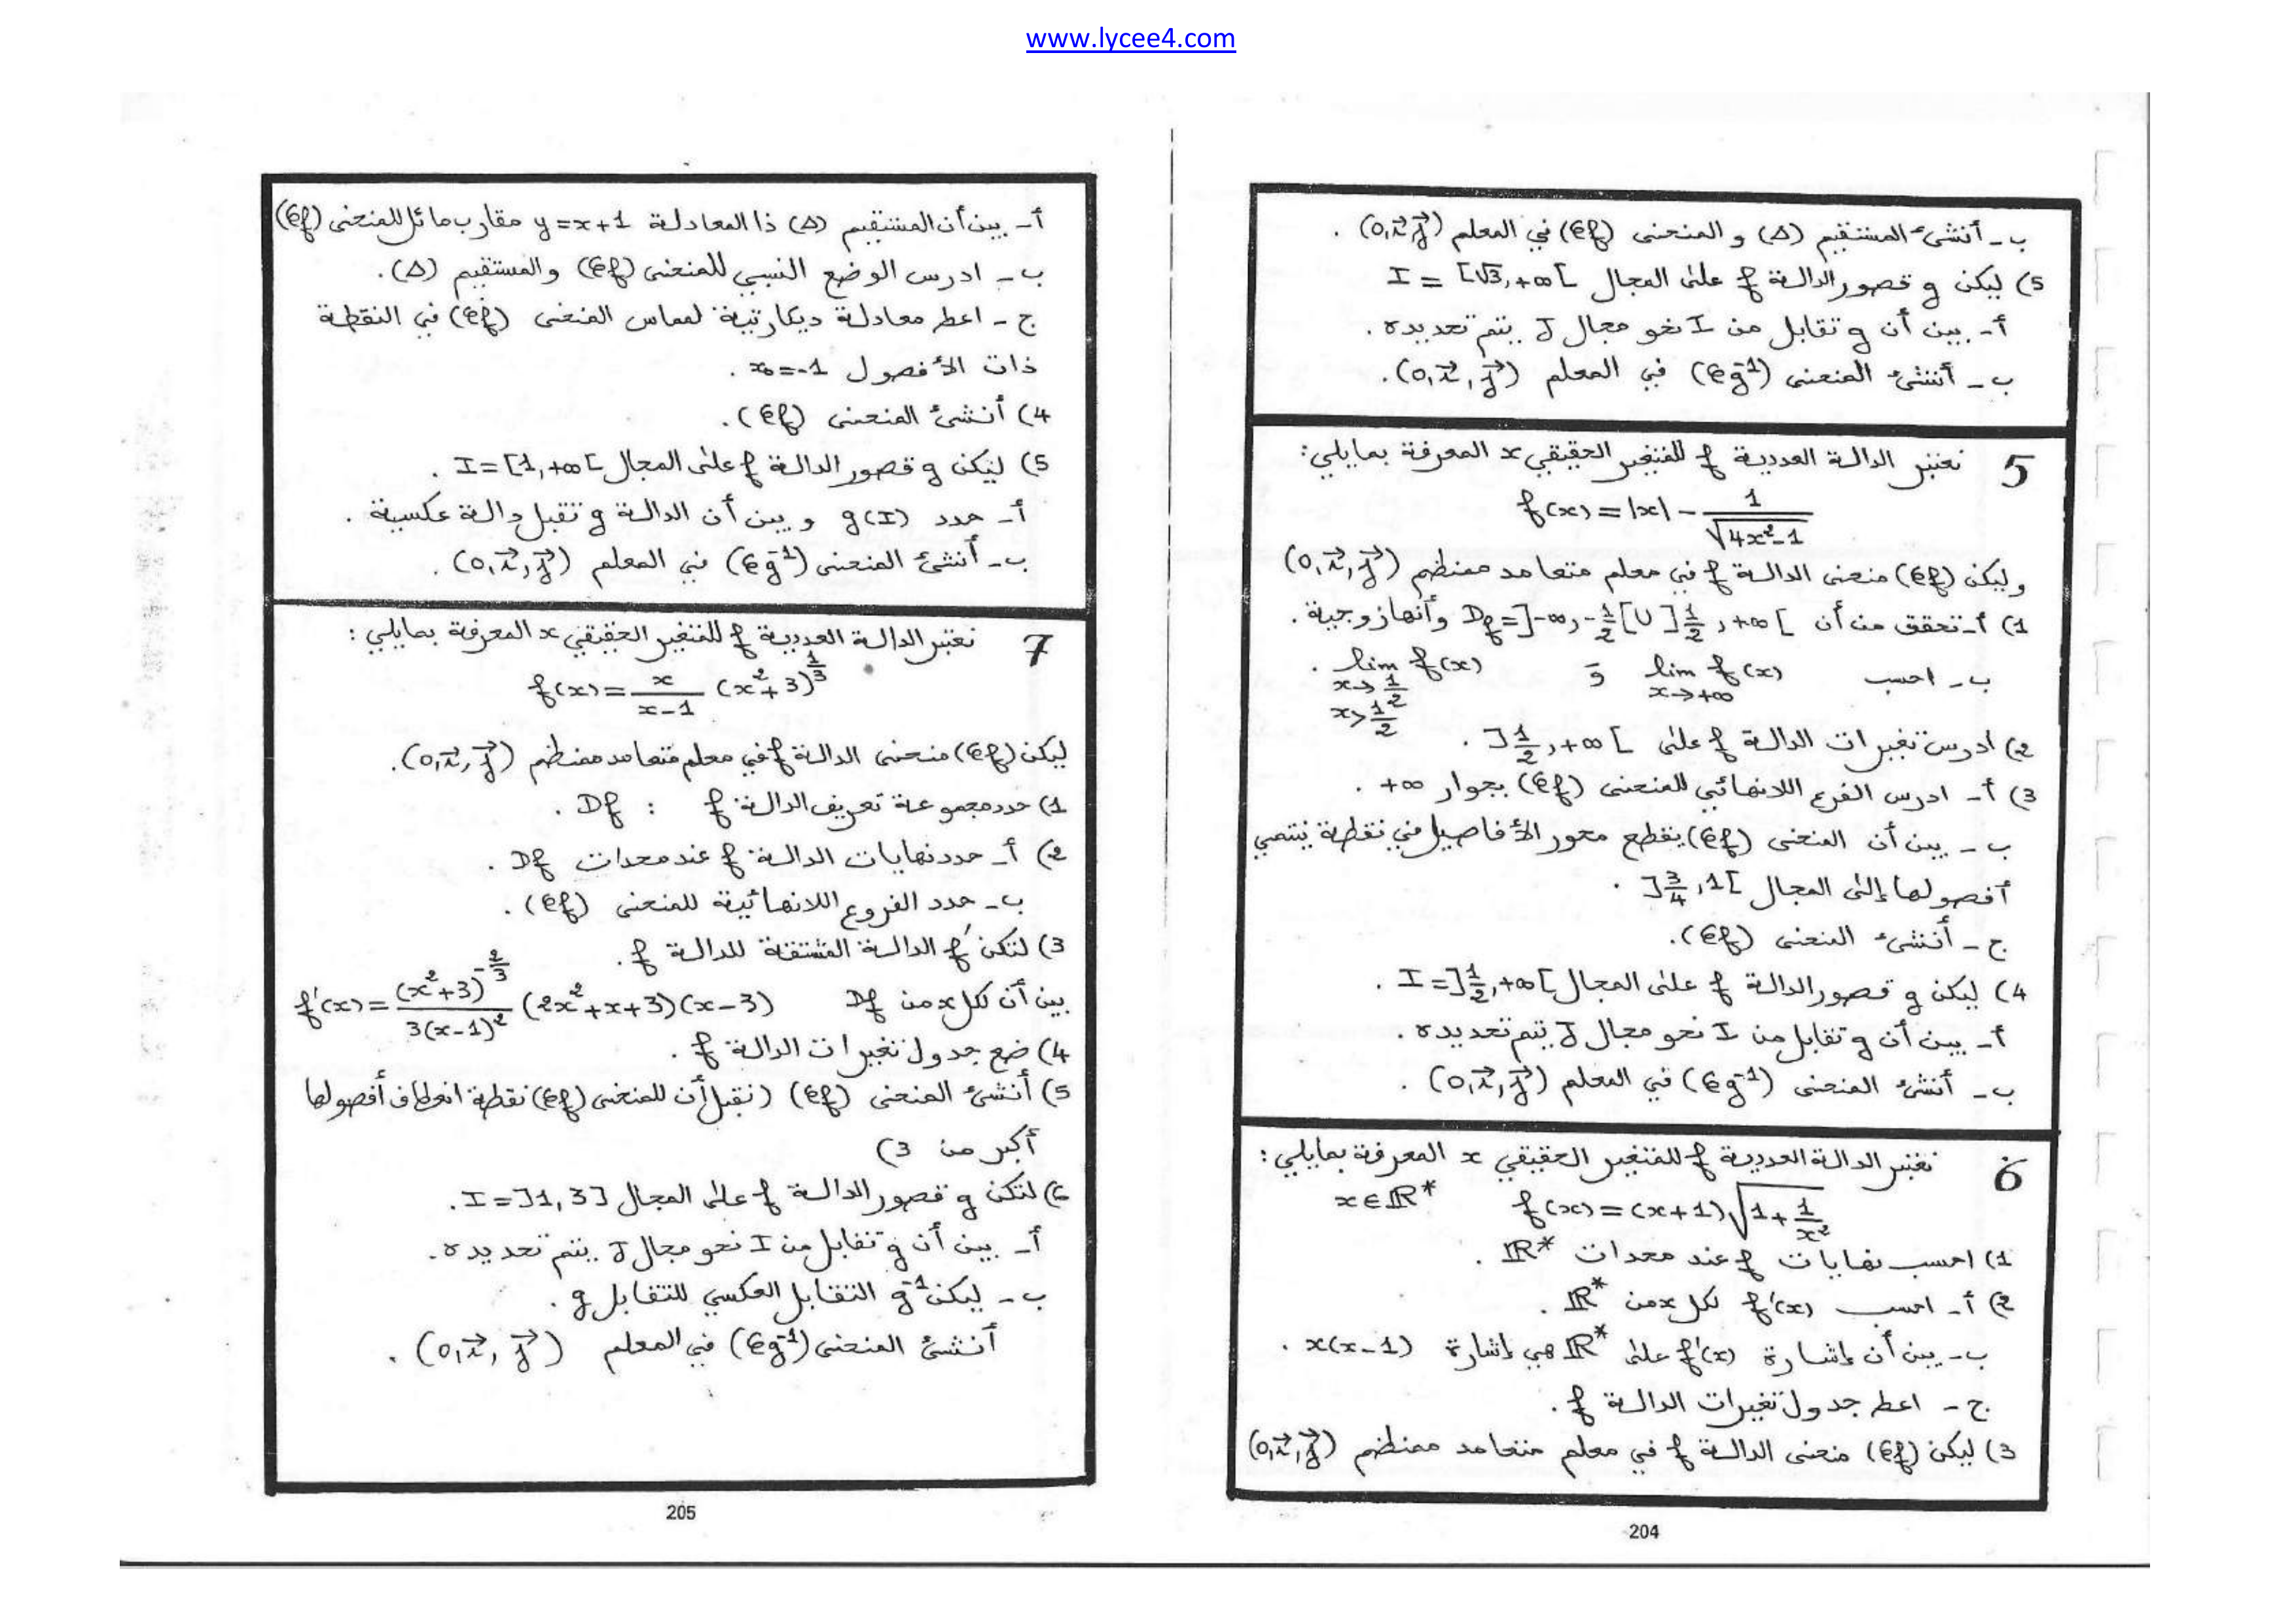 www.lycee4.com
ب - أنشئ المستقيم (Δ) و المنحنى (𝒞f) في المعلم (0, i⃗, j⃗) .
5) ليكن g قصور الدالة f على المجال I = [√3, +∞[
أ - بين أن g تقابل من I نحو مجال J يتم تحديده .
ب - أنشئ المنحنى (𝒞g⁻¹) في المعلم (0, i⃗, j⃗) .
5 نعتبر الدالة العددية f للمتغير الحقيقي x المعرفة بمايلي :
f(x) = |x| - 1/√(4x²-1)
وليكن (𝒞f) منحنى الدالة f في معلم متعامد ممنظم (0, i⃗, j⃗)
1) أ - تحقق من أن Df = ]-∞, -1/2[ ∪ ]1/2, +∞[ وأنها زوجية .
ب - احسب lim f(x) x→+∞ و lim f(x) x→1/2 x>1/2 .
2) ادرس تغيرات الدالة f على ]1/2, +∞[ .
3) أ - ادرس الفرع اللانهائي للمنحنى (𝒞f) بجوار +∞ .
ب - بين أن المنحنى (𝒞f) يقطع محور الأفاصيل في نقطة ينتمي
أفصولها إلى المجال ]3/4, 1[ .
ج - أنشئ المنحنى (𝒞f) .
4) ليكن g قصور الدالة f على المجال I = ]1/2, +∞[ .
أ - بين أن g تقابل من I نحو مجال J يتم تحديده .
ب - أنشئ المنحنى (𝒞g⁻¹) في المعلم (0, i⃗, j⃗) .
6 نعتبر الدالة العددية f للمتغير الحقيقي x المعرفة بمايلي :
f(x) = (x+1)√(1+1/x²) x∈ℝ*
1) احسب نهايات f عند محدات ℝ* .
2) أ - احسب f'(x) لكل x من ℝ* .
ب - بين أن إشارة f'(x) على ℝ* هي إشارة x(x-1) .
ج - اعط جدول تغيرات الدالة f .
3) ليكن (𝒞f) منحنى الدالة f في معلم متعامد ممنظم (0, i⃗, j⃗)
204
أ - بين أن المستقيم (Δ) ذا المعادلة y = x+1 مقارب مائل للمنحنى (𝒞f)
ب - ادرس الوضع النسبي للمنحنى (𝒞f) والمستقيم (Δ) .
ج - اعط معادلة ديكارتية لمماس المنحنى (𝒞f) في النقطة
ذات الأفصول x₀ = -1 .
4) أنشئ المنحنى (𝒞f) .
5) ليكن g قصور الدالة f على المجال I = [1, +∞[ .
أ - حدد g(I) و بين أن الدالة g تقبل دالة عكسية .
ب - أنشئ المنحنى (𝒞g⁻¹) في المعلم (0, i⃗, j⃗) .
7 نعتبر الدالة العددية f للمتغير الحقيقي x المعرفة بمايلي :
f(x) = x/(x-1) (x²+3)^(1/3)
ليكن (𝒞f) منحنى الدالة f في معلم متعامد ممنظم (0, i⃗, j⃗) .
1) حدد مجموعة تعريف الدالة f : Df .
2) أ - حدد نهايات الدالة f عند محدات Df .
ب - حدد الفروع اللانهائية للمنحنى (𝒞f) .
3) لتكن f' الدالة المشتقة للدالة f .
بين أن لكل x من Df f'(x) = (x²+3)^(-2/3)/3(x-1)² (2x²+x+3)(x-3)
4) ضع جدول تغيرات الدالة f .
5) أنشئ المنحنى (𝒞f) (نقبل أن للمنحنى (𝒞f) نقطة انعطاف أفصولها
أكبر من 3)
6) لتكن g قصور الدالة f على المجال I = ]1, 3] .
أ - بين أن g تقابل من I نحو مجال J يتم تحديده .
ب - ليكن g⁻¹ التقابل العكسي للتقابل g .
أنشئ المنحنى (𝒞g⁻¹) في المعلم (0, i⃗, j⃗) .
205